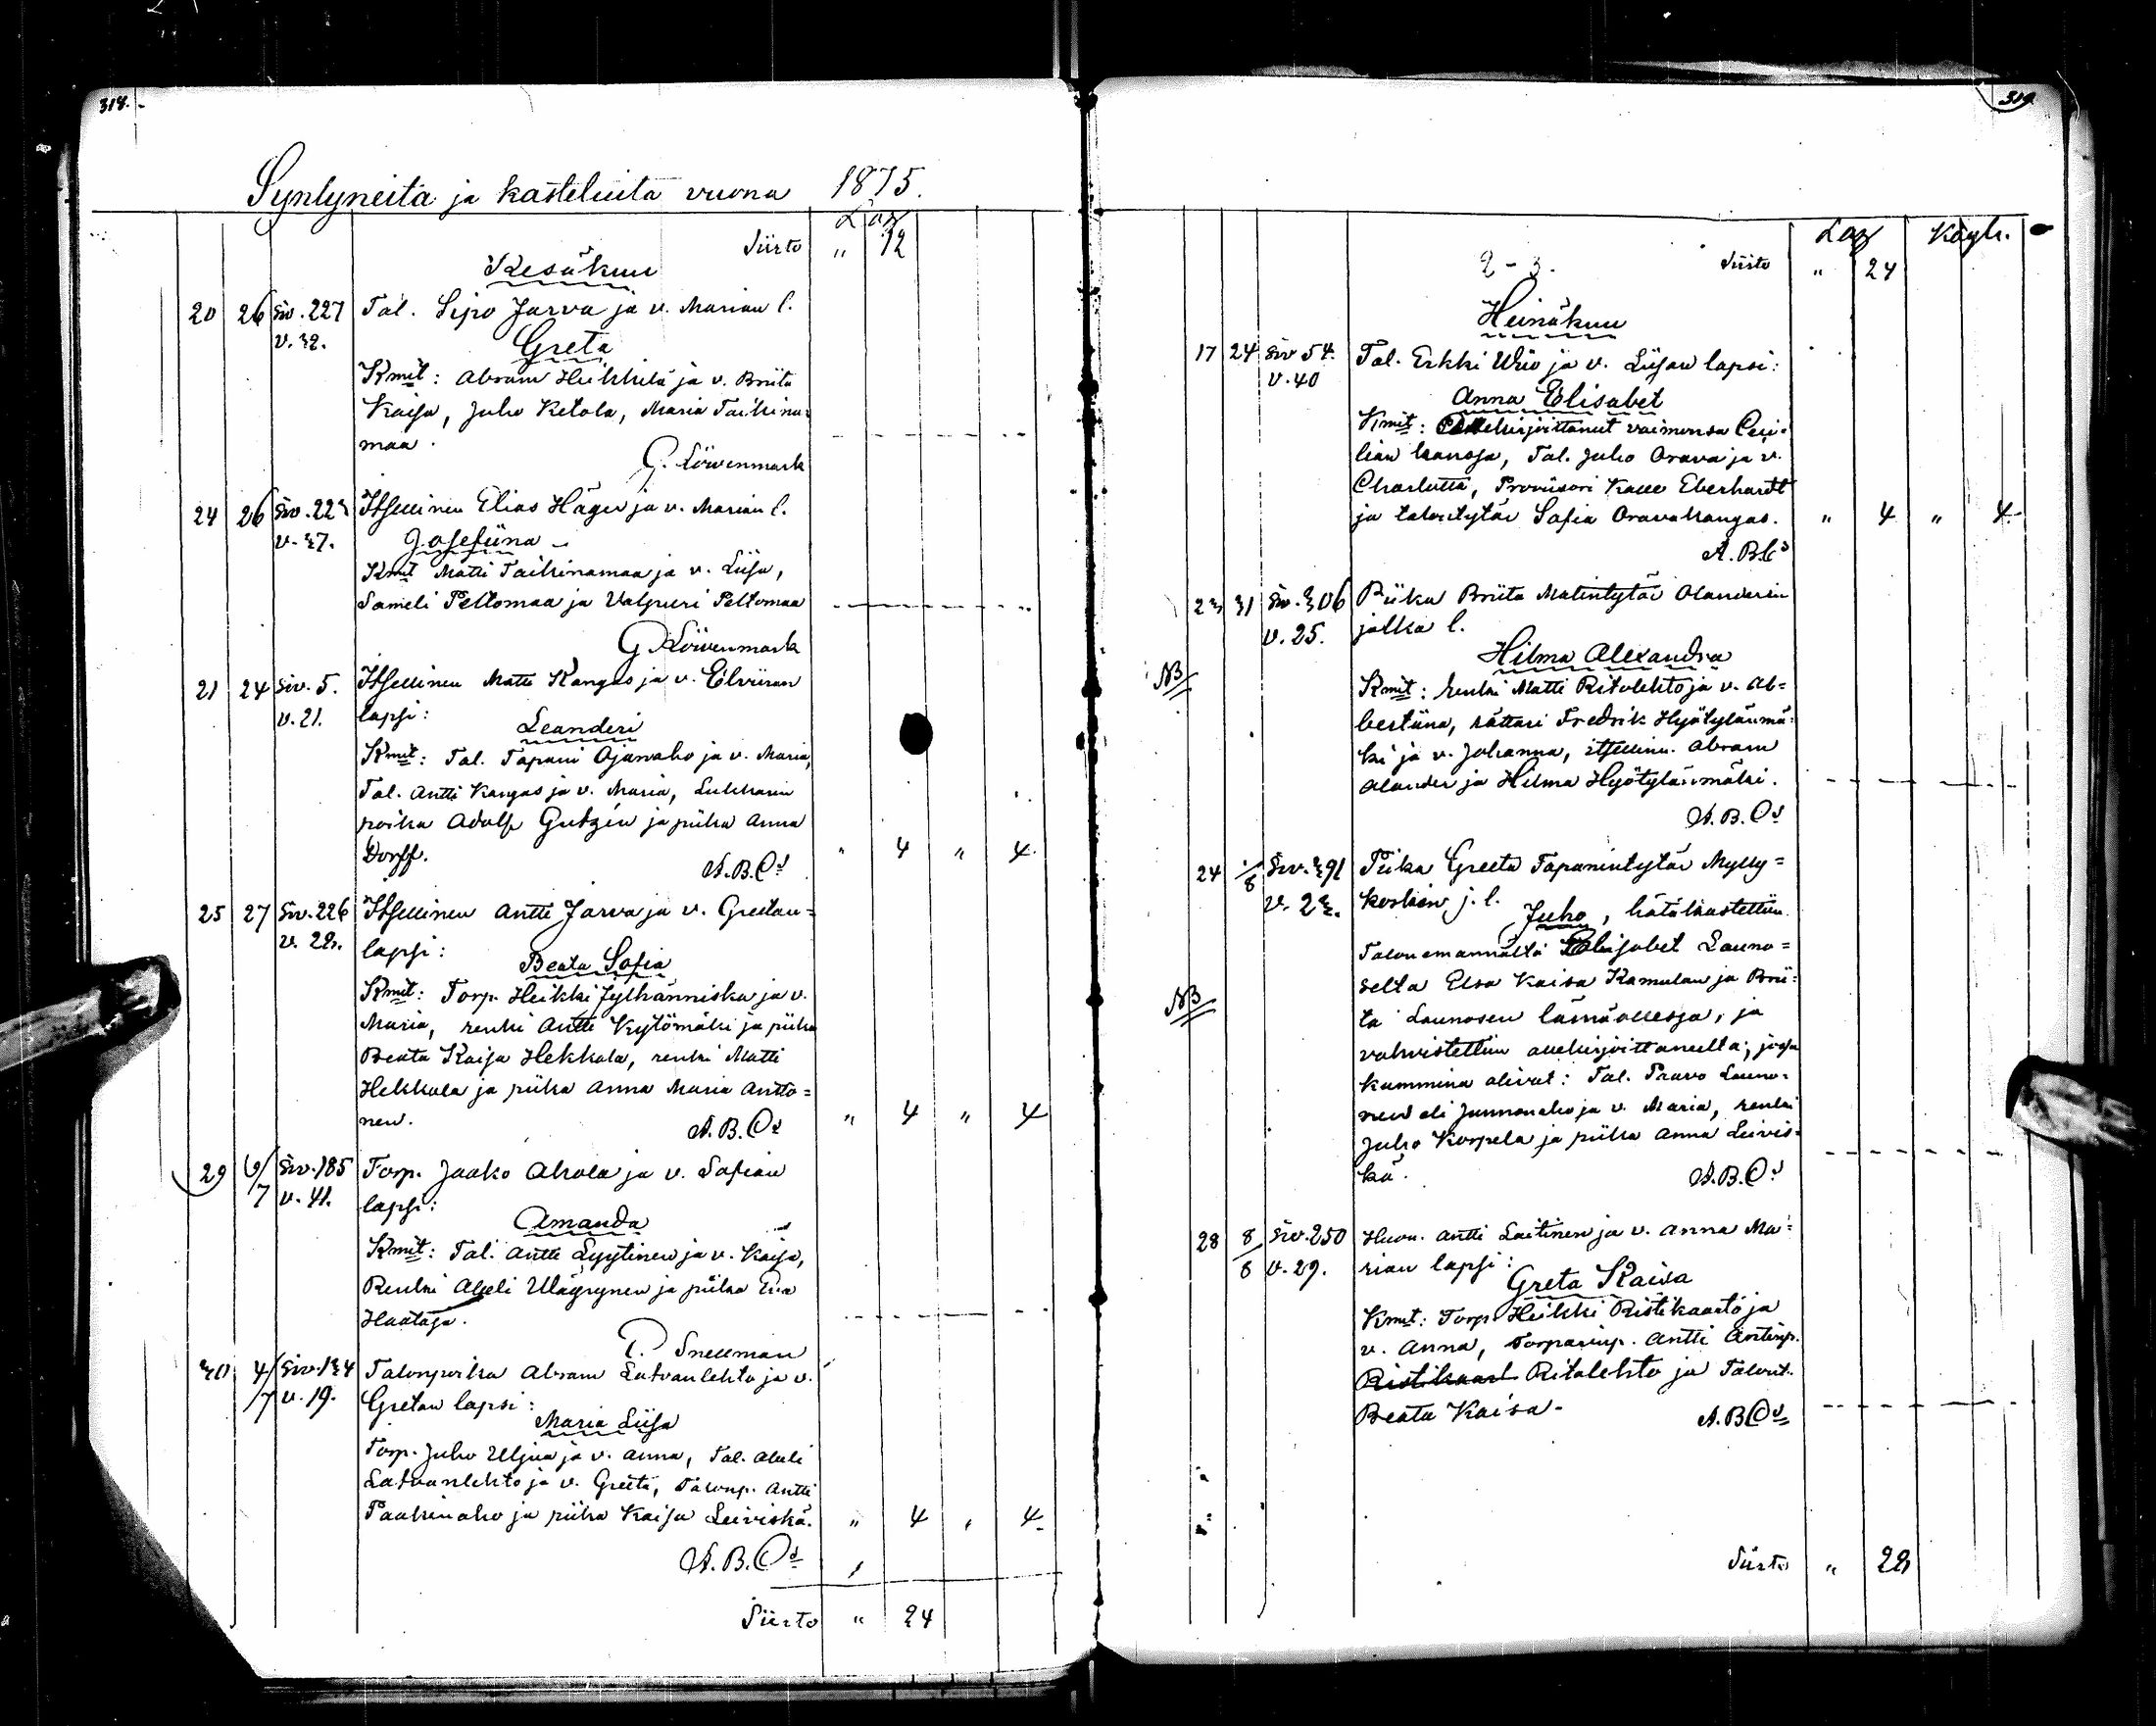 318.
Syntyneitä ja kastetuita vuona 1875.
Laz
Siirto " 12
Kesäkuu
20 26 Siv. 227 Tal. Sipo Jarva ja v. Marian l.
v. 32. Greta
Kmit: Abram Heikkilä ja v. Briita
Kaisa, Juho Ketola, Maria Taikina-
maa.
G. Löwenmark
24 26 Siv. 223 Itsellinen Elias Häger ja v. Marian l.
v. 37. Josefiina
Kmit Matti Taikinamaa ja v. Liisa,
Sameli Peltomaa ja Valpuri Peltomaa
G Löwenmark
21 24 Siv. 5. Itsellinen Matti Kangas ja v. Elviiran
v. 21. lapsi:
Leanderi
Kmit: Tal. Tapani Ojanaho ja v. Maria,
Tal. Antti Kangas ja v. Maria, Lukkarin
poika Adolf Gutzén ja piika Anna
Dorff. " 4 " 4
A.B.Cs
25 27 Siv. 226 Itsellinen Antti Jarva ja v. Gretan-
v. 22. lapsi:
Beata Sofia
Kmit: Torp. Heikki Jylhänniska ja v.
Maria, renki Antti Kytömäki ja piika
Beata Kaisa Hekkala, renki Matti
Hekkala ja piika Anna Maria Antto=
nen. A.B.Cs " 4 " 4
29 6/7 Siv. 185 Torp. Jaako Ahola ja v. Sofian
v. 41. lapsi:
Amanda
Kmit: Tal. Antti Lyytinen ja v. Kaisa,
Renki Akseli Väyrynen ja piika Eva
Haataja.
P. Snellman
30 4/7 Siv. 134 Talonpoika Abram Latvanlehto ja v.
v. 19. Gretan lapsi:
Maria Liisa
Torp. Juho Uljua ja v. Anna, Tal.
Latvanlehto ja v. Greeta, Talonp. Antti
Paakinaho ja piika Kaisa Leiviskä. " 4 " 4
A.B.Cs
Siirto " 24
319
Laz Käyh.
2-3. Siirto " 24
Heinäkuu
17 24 Siv 54. Tal. Erkki Wiio ja v. Liisan lapsi:
v. 40 Anna Elisabet
Kmit: allekirjoittanut vaimonsa Ceci-
lian kanssa, Tal. Juho Orava ja v.
Charlotta, Proviisori Kalle Eberhardt
ja talontytär Sofia Oravakangas. " 4 " 4
A. B.Cs
23 31 Siv. 306 Piika Briita Matintytär Olanderin
v. 25. jalka l.
Hilma Alexandra
NB
Kmit: renki Matti Ritolehto ja v. Al=
bertiina, rättäri Fredrik Hyötylänmä-
ki ja v. Johanna, itsellinn. Abram
Olander ja Hilma Hyötylänmäki.
A.B.Cs
24 1/8 Siv. 391 Piika Greeta Tapanintytär Mylly=
v. 23. kosken j. l.
Juho, hätäkastettiin
Talonemännältä Elisabet Launo=
selta Elsa Kaisa Kamulan ja Brii-
NB
ta Launosen läsnäollessa, ja
vahvistettiin allekirjoittaneelta; jossa
kummina olivat: Tal. Paavo Launo-
nen eli Junnonaho ja v. Maria, renki
Juho Korpela ja piika Anna Leivis-
kä. A.B.Cs
28 8/8 Siv. 250 Huon. Antti Laitinen ja v. Anna Ma-
v. 29. rian lapsi:
Greta Kaisa
Kmit: Torp. Heikki Ristikaarto ja
v. Anna, Torparinp. Antti Antinp.
Ristikaart Ritolehto ja Talont.
Beata Kaisa. A.B.Cs
Siirto " 28